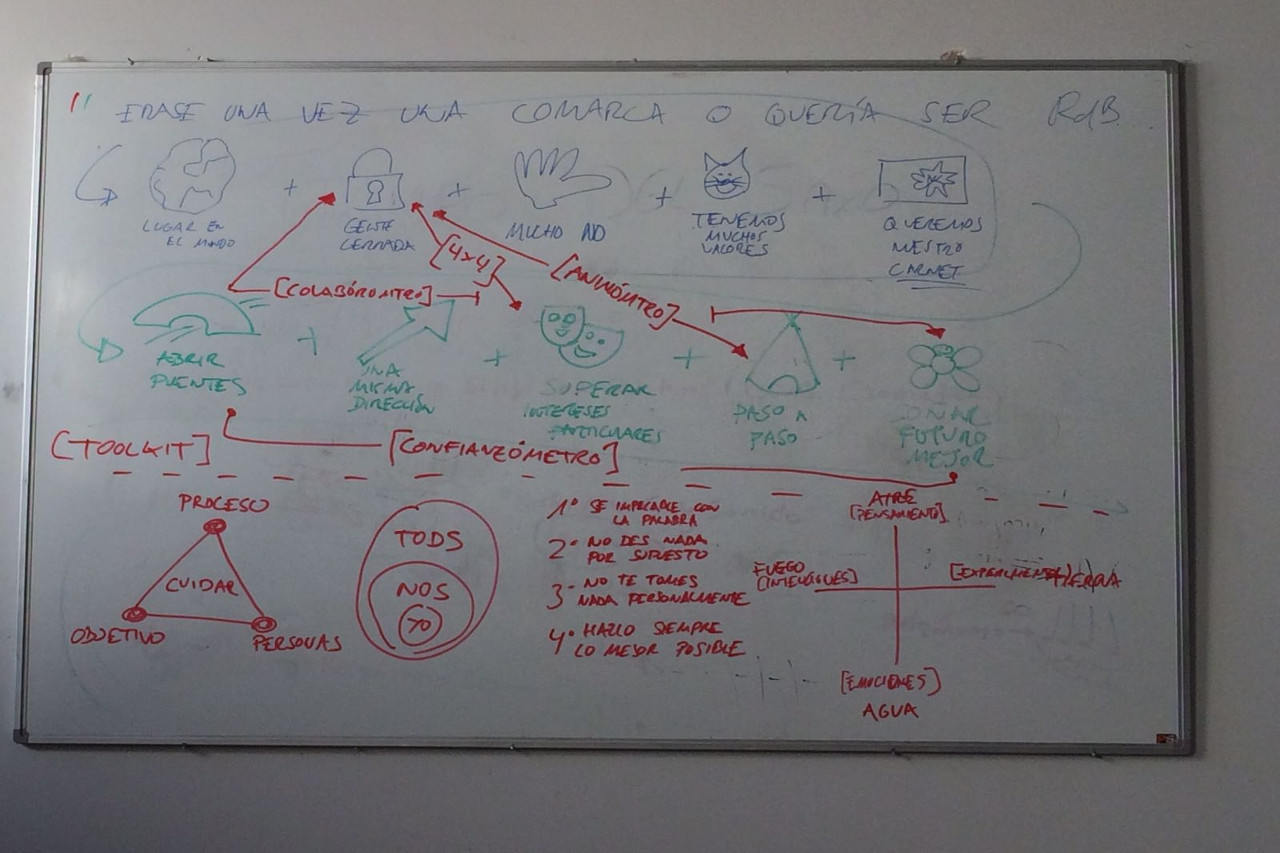 ERASE UNA VEZ UNA COMARCA O QUERÍA SER RdB
LUGAR EN
EL MUNDO
+
GENTE
CERRADA
+
MUCHO NO
+
TENEMOS
MUCHOS
VALORES
+
QUEREMOS
NUESTRO
CARNET
[COLABÓROMTRO]
[4x4]
[ANIMÓMTRO]
ABRIR
PUENTES
+
UNA
MISMA
DIRECCIÓN
+
SUPERAR
INTERESES
PARTICULARES
+
PASO A
PASO
+
SOÑAR
FUTURO
MEJOR
[TOOLKIT]
[CONFIANZÓMETRO]
PROCESO
CUIDAR
OBJETIVO
PERSONAS
TODS
NOS
YO
1º SE IMPECABLE CON
LA PALABRA
2º NO DES NADA
POR SUPUESTO
3º NO TE TOMES
NADA PERSONALMENTE
4º HAZLO SIEMPRE
LO MEJOR POSIBLE
AIRE
[PENSAMIENTO]
FUEGO
[EMOCIONES]
AGUA